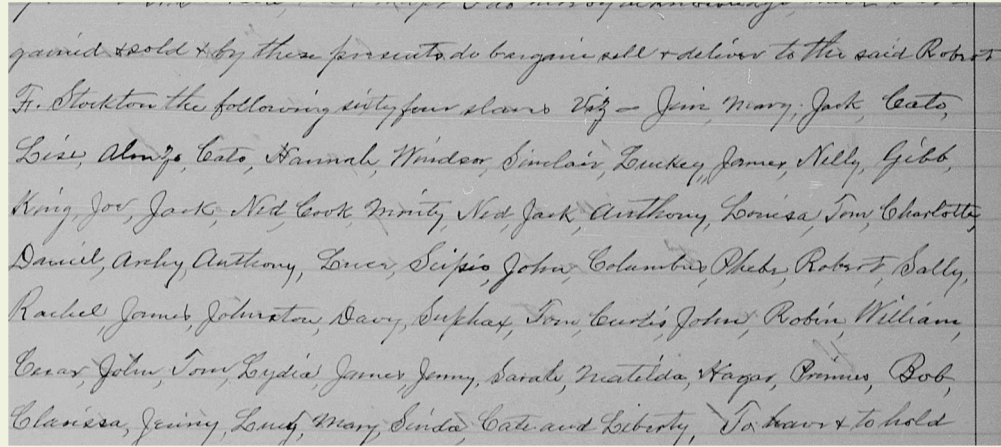 gained & sold & by these presents do bargain sell & deliver to the said Robert
F. Stockton the following sixty four slaves Viz – Jim, Mary, Jack, Cato,
Lise, Alonzo, Cato, Hannah, Windsor, Sinclair, Luckey, James, Nelly, Gibb
King, Joe, Jack, Ned Cook Monty, Ned, Jack, Anthony, Louisa, Tom, Charlotte,
Daniel, Archy, Anthony, Scipio, John, Columbus, Phebe, Robert, Sally,
Rachel, James, Johnston, Davy, Suphax, Tom, Curtis, John, Robin, William,
Cesar, John, Tom, Lydia, James, Jenny, Sarah, Matilda, Hagar, Primus, Bob,
Clarissa, Jenny, Lucy, Mary, Sinda, Cate and Liberty, To have & to hold